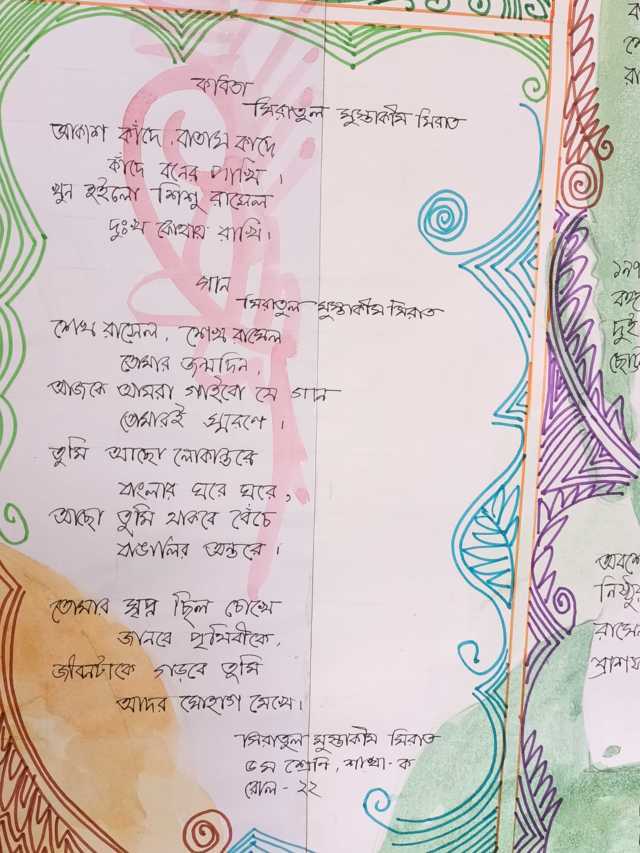 কবিতা
সিরাতুল মুস্তাকীম সিরাত
আকাশ কাঁদে, বাতাস কাঁদে
কাঁদে বনের পাখি ।
খুন হইলো শিশু রাসেল
দুঃখ কোথায় রাখি।
গান
সিরাতুল মুস্তাকীম সিরাত
শেখ রাসেল, শেখ রাসেল
তোমার জন্মদিন,
আজকে আমরা গাইবো যে গান
তোমারই স্মরণে ।
তুমি আছো লোকান্তরে
বাংলার ঘরে ঘরে,
আছো তুমি থাকবে বেঁচে
বাঙালির অন্তরে ।
তোমার স্বপ্ন ছিল চোখে
জানবে পৃথিবীকে,
জীবনটাকে গড়বে তুমি
আদর সোহাগ মেখে।
সিরাতুল মুস্তাকীম সিরাত
৫ম শ্রেনি, শাখা - ক
রোল - ২২
দুই